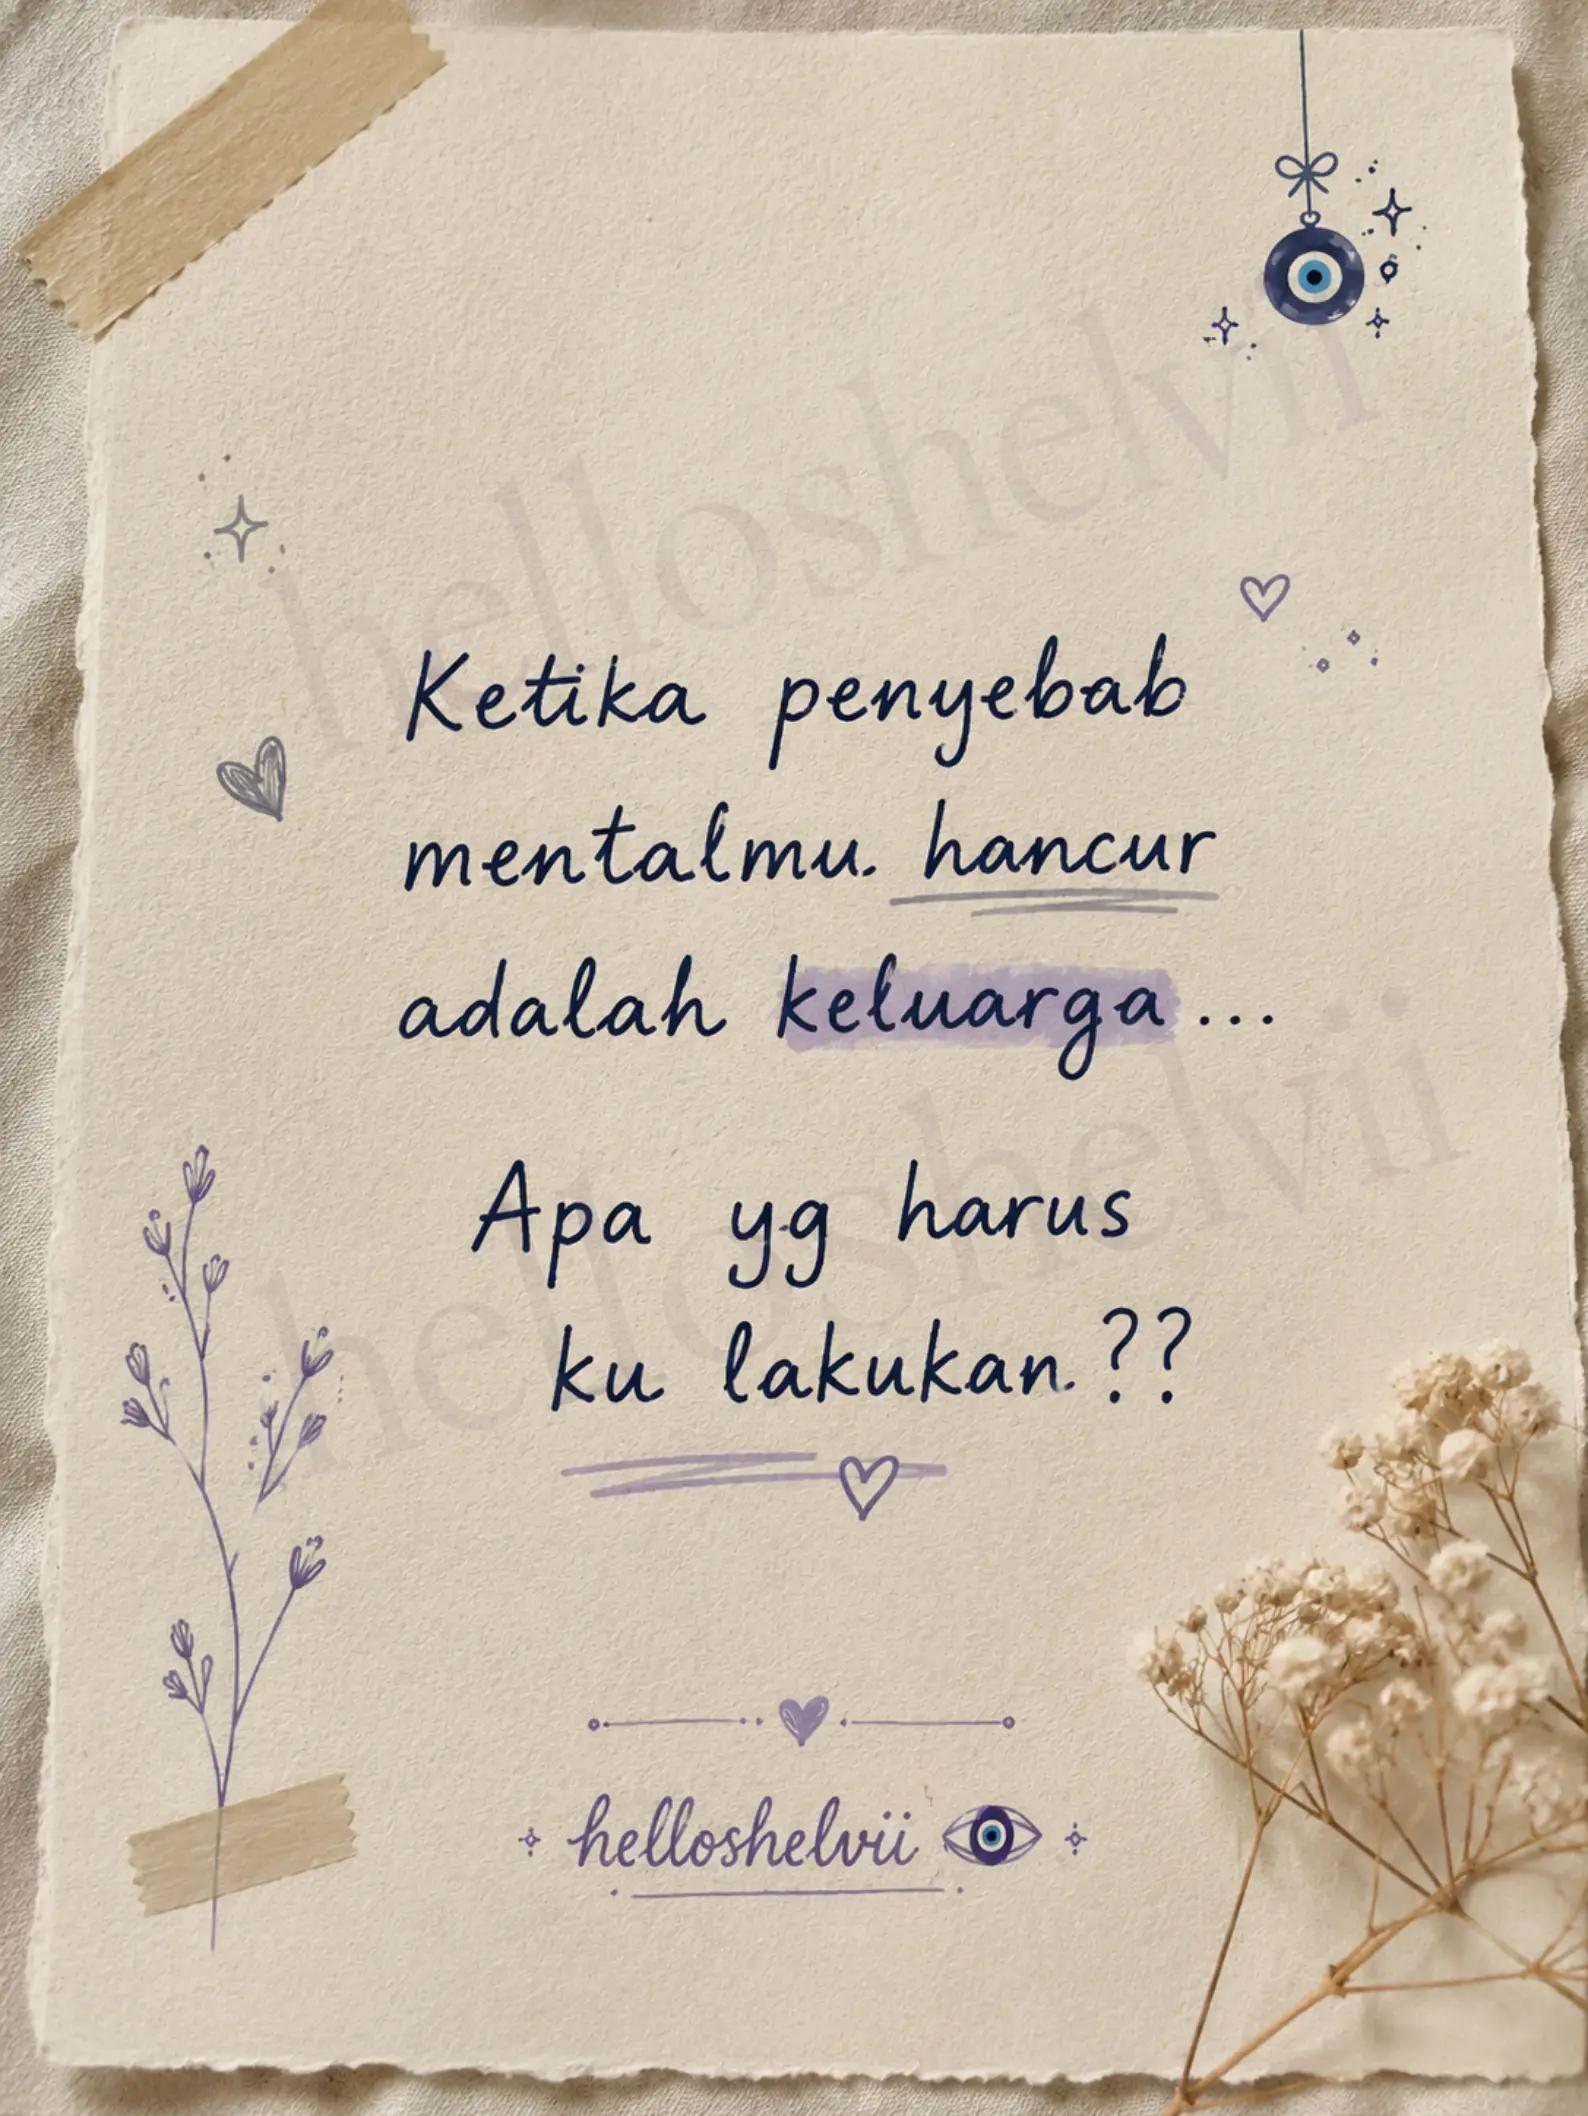 helloshelvii
Ketika penyebab
mentalmu. hancur
adalah keluarga...
helloshelvii
Apa yg harus
ku lakukan.??
helloshelvii